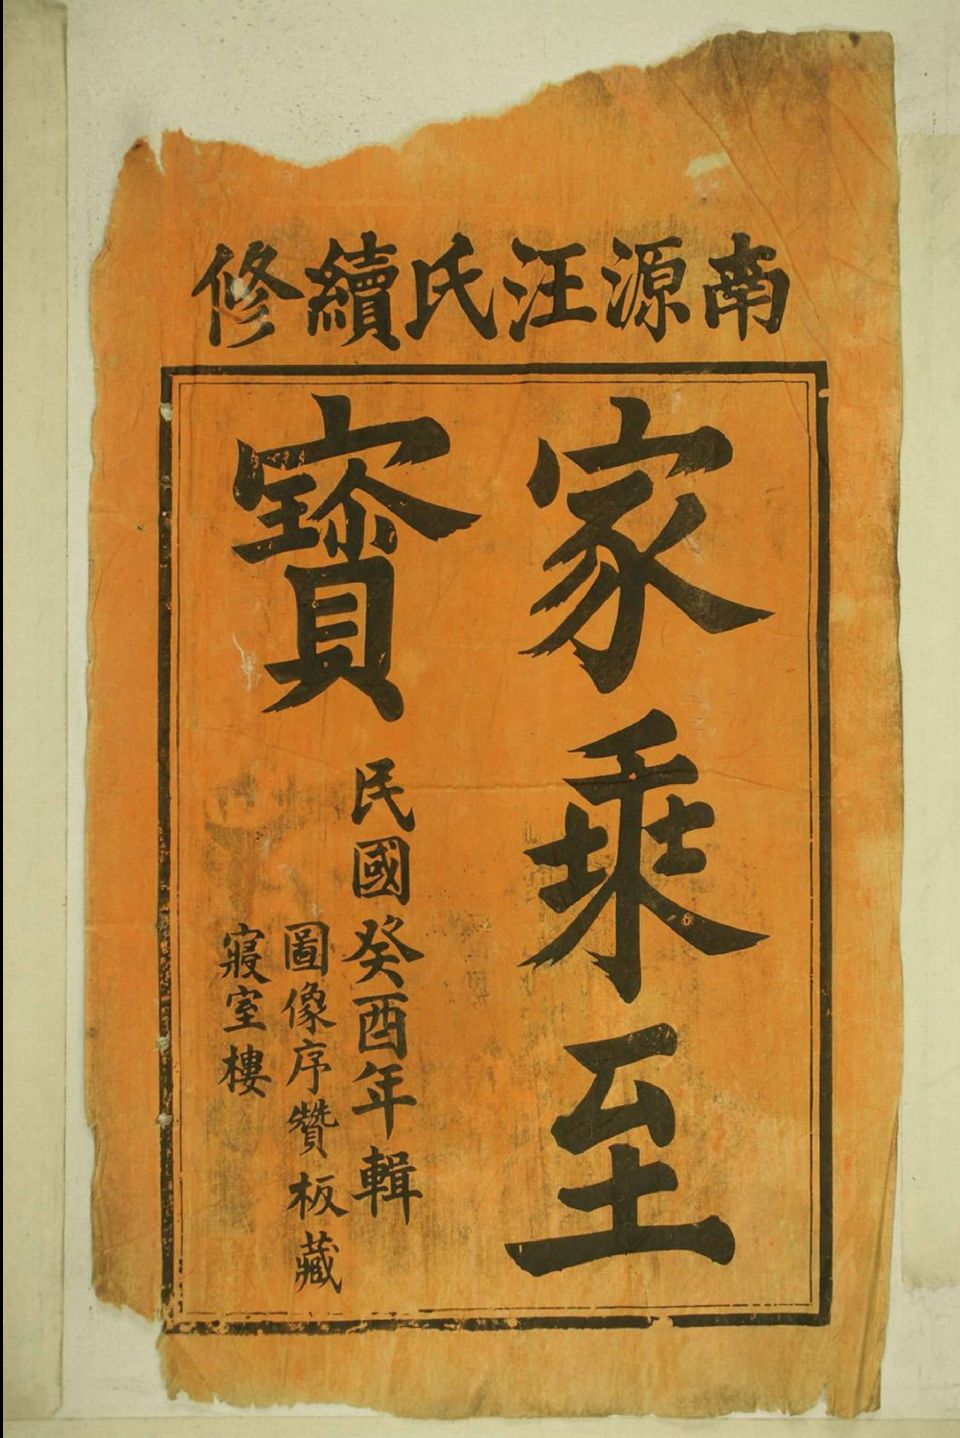 南源汪氏續修
家乘至
寳
民國癸酉年輯
圖像序贊板藏
寢室樓